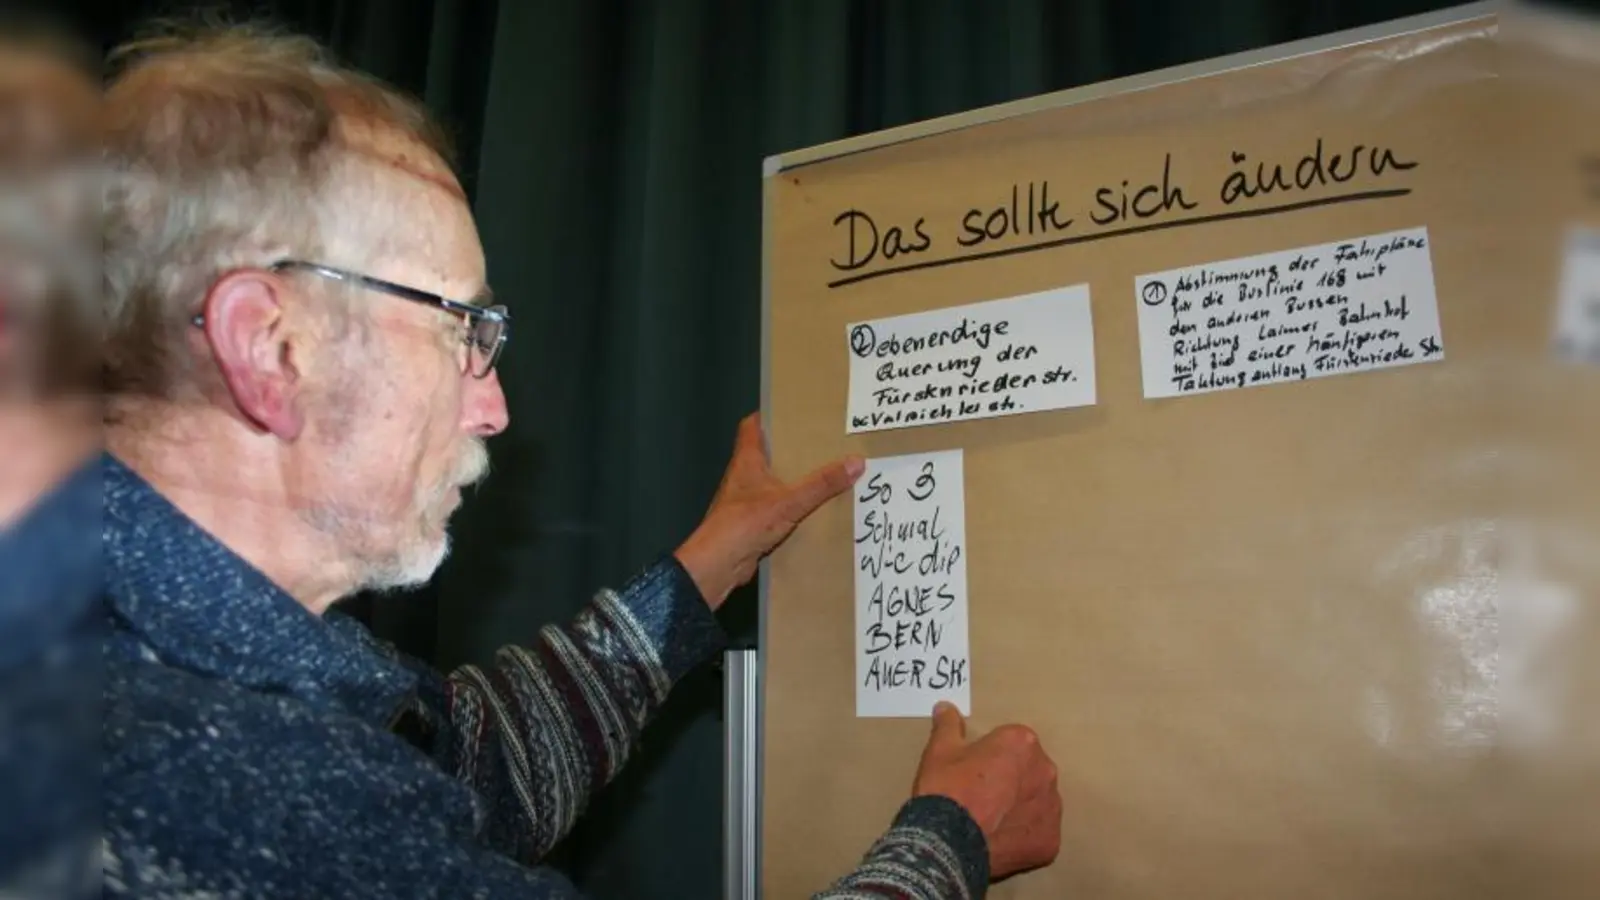 Das sollte sich ändern
② ebenerdige
Querung der
Fürstenriederstr.
① Abstimmung der Fahrpläne
für die Buslinie 168 mit
den anderen Bussen
Richtung Laimer Bahnhof
mit einer häufigeren
Taktung entlang Fürstenriede Str.
So 3
Schmal
wie die
AGNES
BERN
AUER Str.